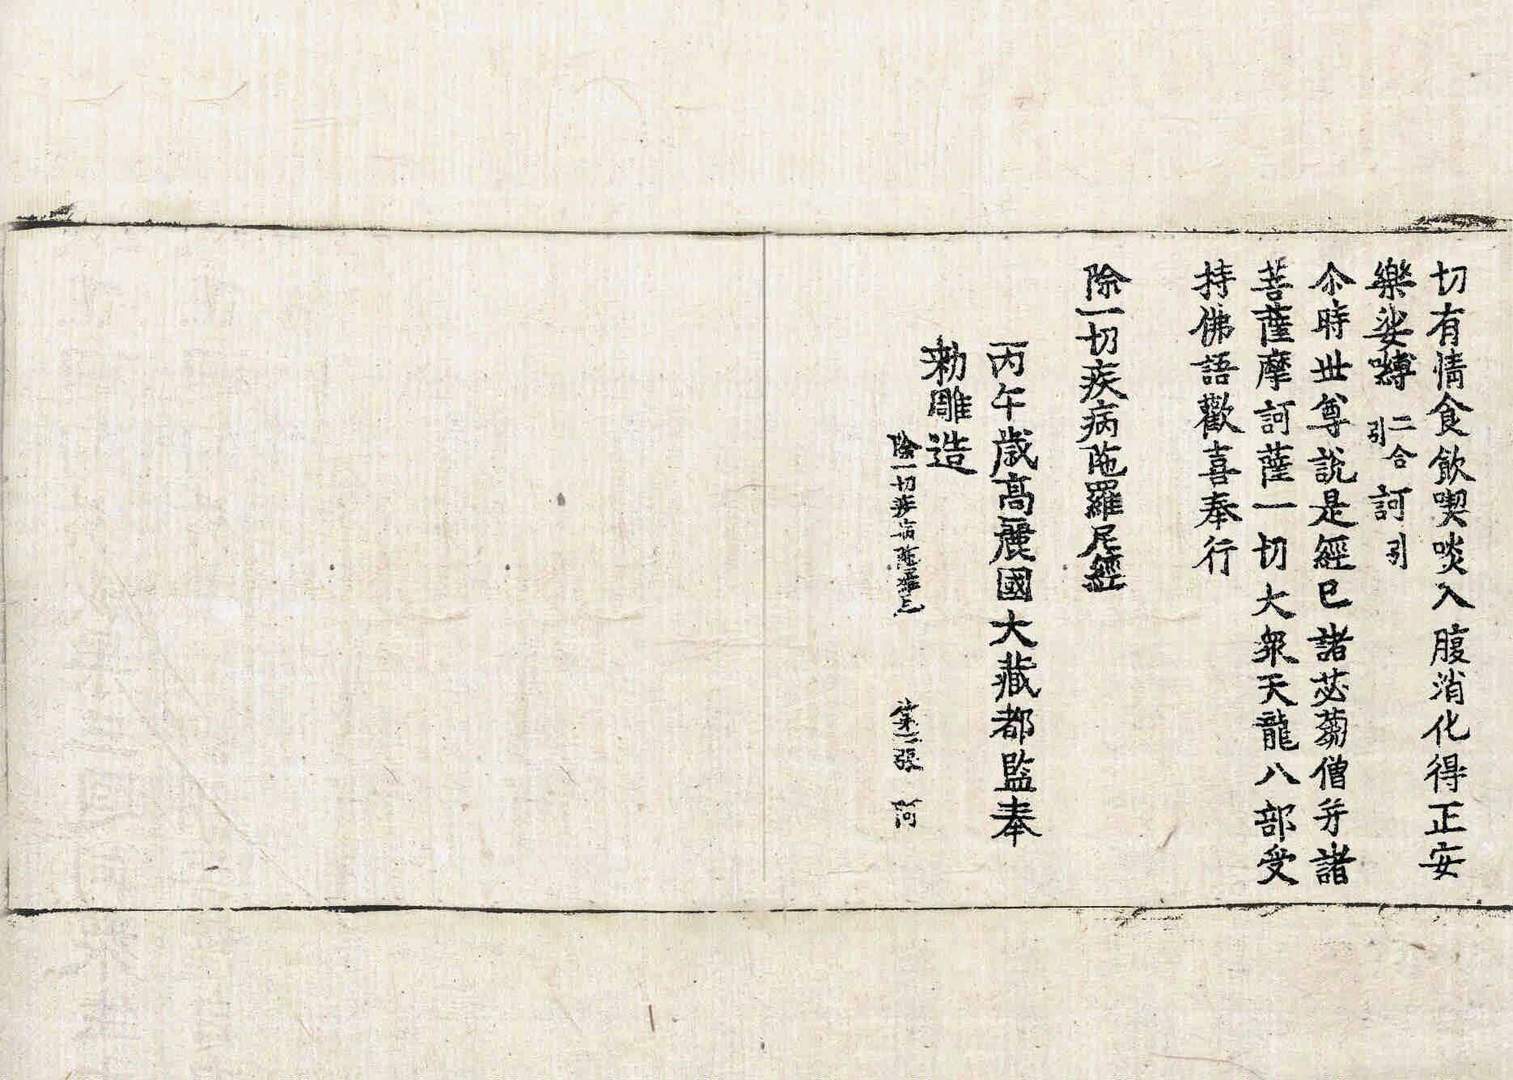 切有情食飲喫啖入腹消化得正安
樂娑嚩二合引訶引
尒時世尊說是經已諸苾蒭僧幷諸
菩薩摩訶薩一切大衆天龍八部受
持佛語歡喜奉行
除一切疾病陁羅尼經
丙午歲高麗國大藏都監奉
勑雕造
除一切疾病陁羅尼 第二張 阿